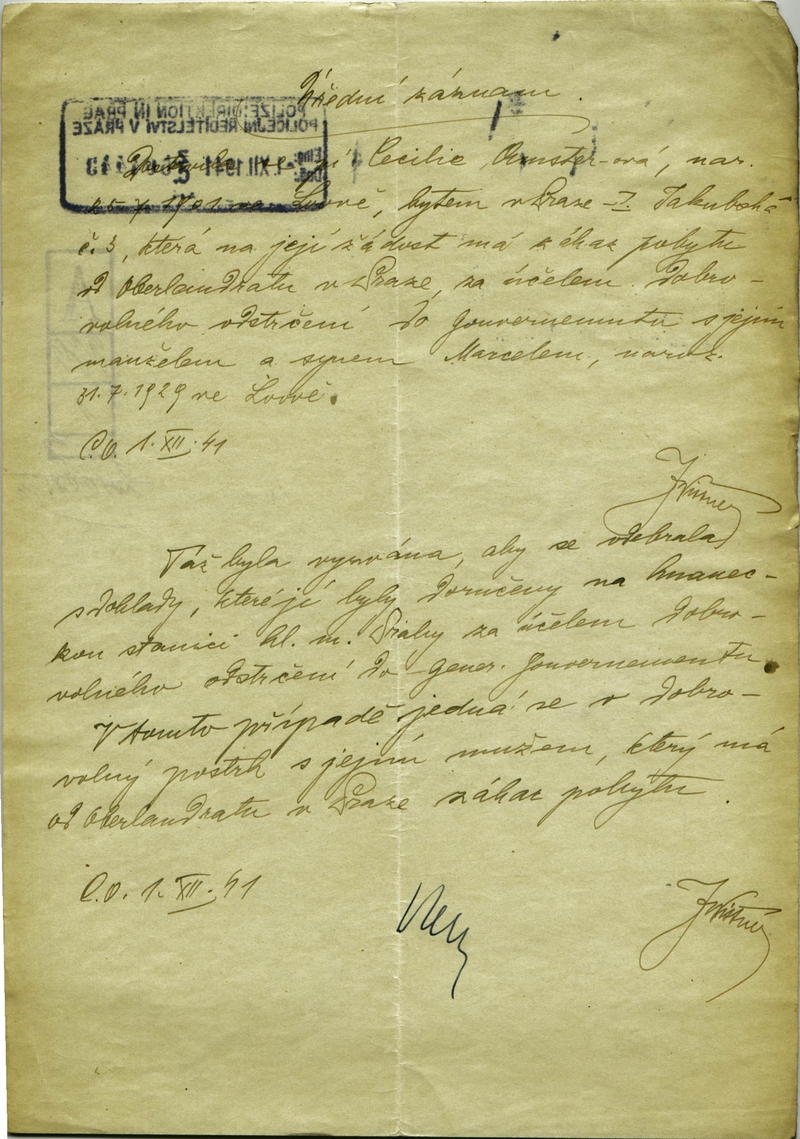 Úřední záznam.
POLIZEIDIREKTION IN PRAG
POLICEJNÍ ŘEDITELSTVÍ V PRAZE
Eing.: Doš.: 1.XII 1941
Dostavila se pí Cecilie Amster-ová, nar.
ve Lvově, bytem v Praze-I. Jakubská
č. 3, která na její žádost má zákaz pobytu
od Oberlandratu v Praze, za účelem dobro-
volného odstrčení do Gouvernementu s jejím
manželem a synem Marcelem, naroz.
31.7.1929 ve Lvově.
C.O. 1.XII.41
Táž byla vyzvána, aby se odebrala
s doklady, které jí byly doručeny na hnanec-
kou stanici hl. m. Prahy za účelem dobro-
volného odstrčení do Gener. Gouvernementu
V tomto případě jedná se o dobro-
volný postrk s jejím mužem, který má
od Oberlandratu v Praze zákaz pobytu.
C.O. 1.XII.41